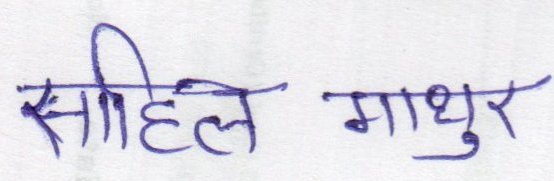 साहिल माथुर